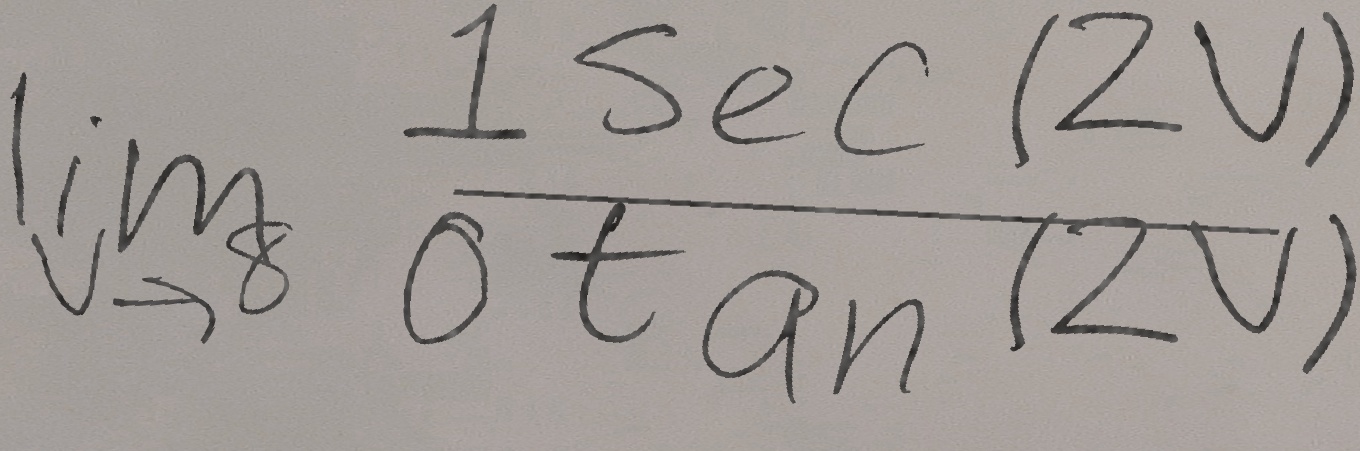 lim v→8 1 sec (2v) / 0 tan (2v)